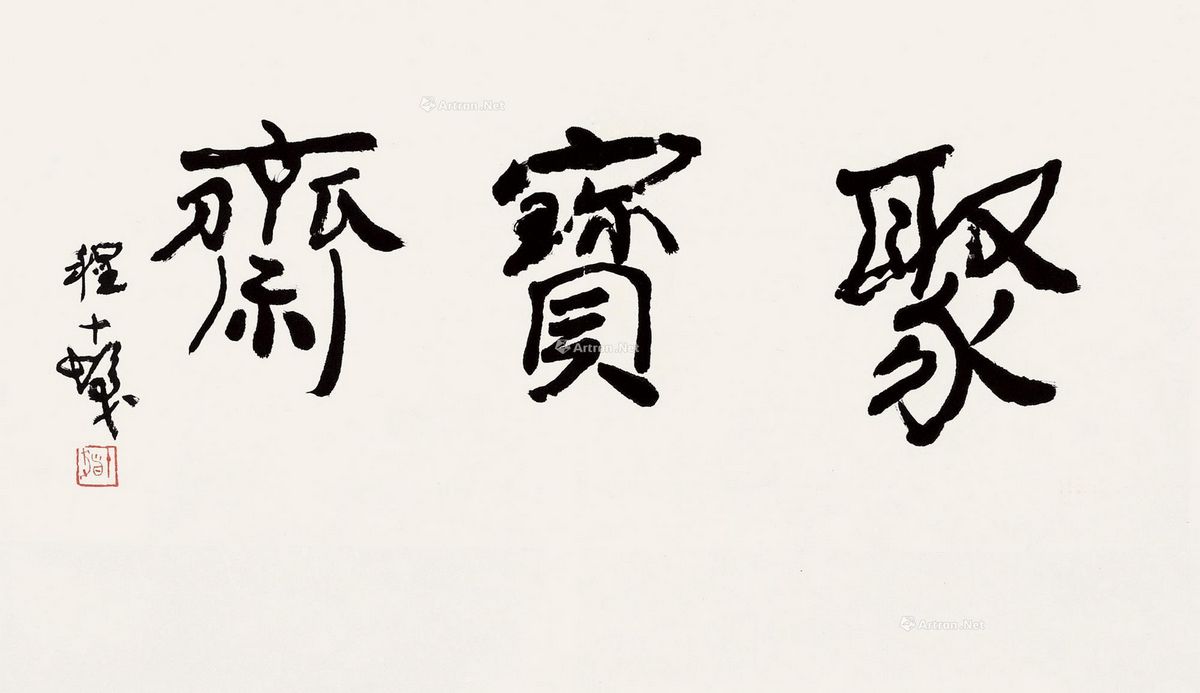 聚寶齋
程十髮
Artron.Net
Artron.Net
Artron.Net